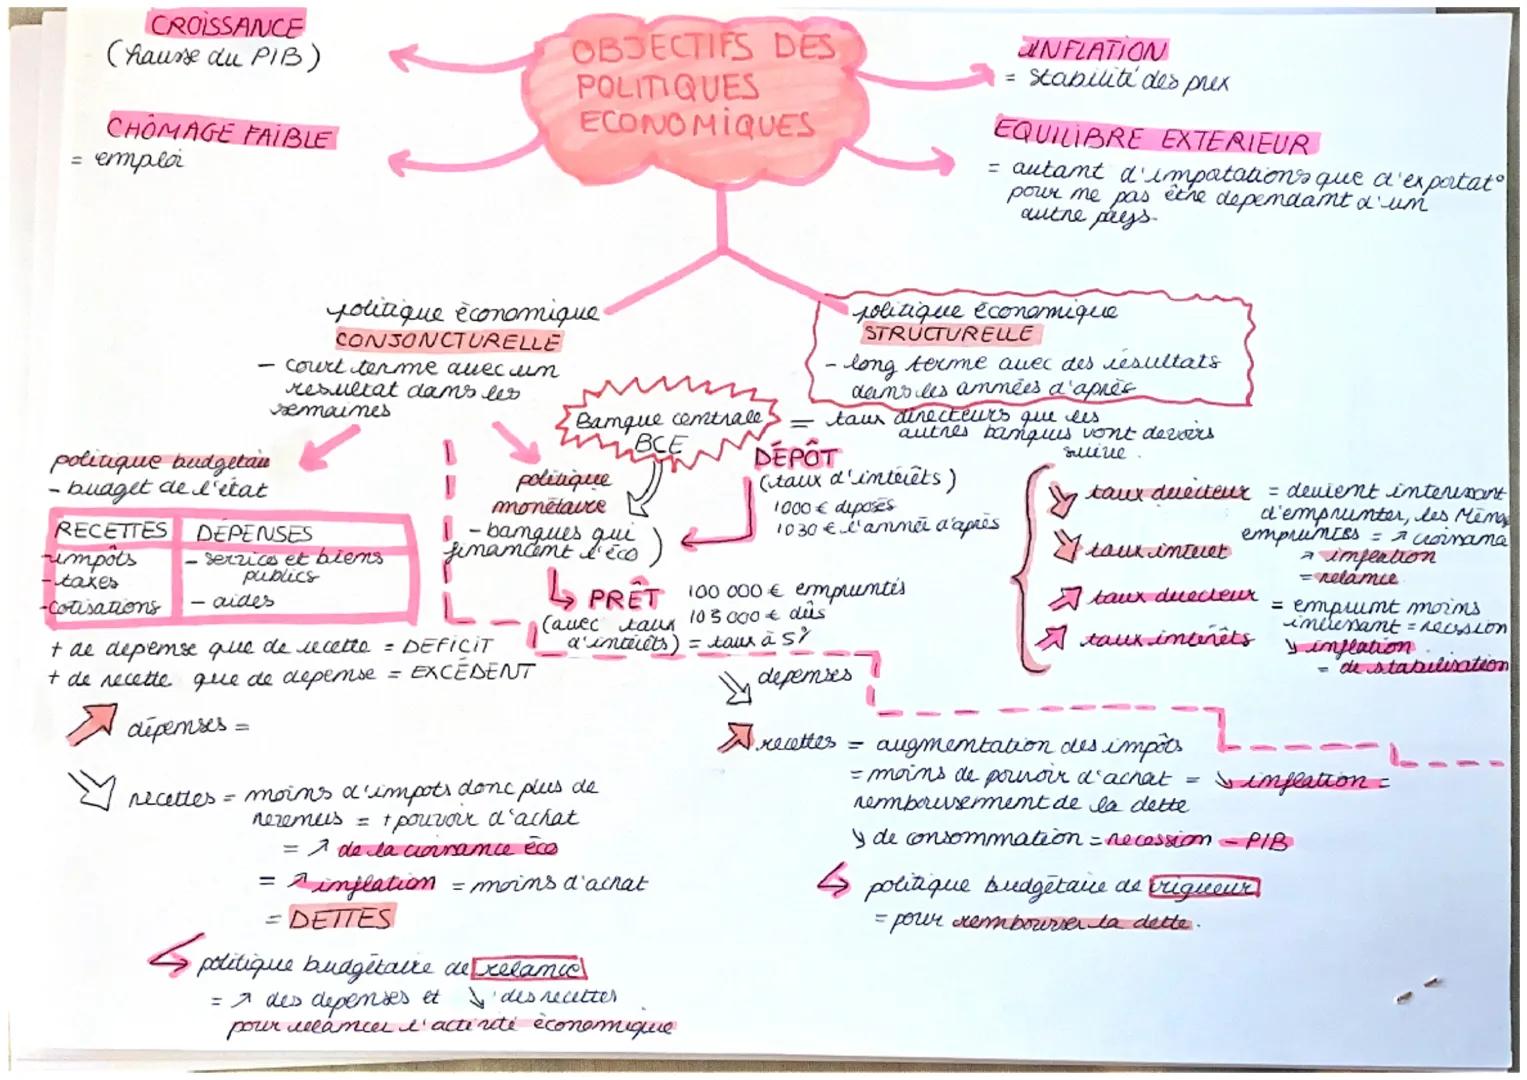 OBJECTIFS DES
POLITIQUES
ECONOMIQUES
CROISSANCE
(hausse du PIB)
CHÔMAGE FAIBLE
= emploi
INFLATION
= stabilité des prix
EQUILIBRE EXTERIEUR
= autant d'importations que d'exportat°
pour ne pas être dependant d'un
autre pays.
politique économique
CONJONCTURELLE
- court terme avec un
resultat dans les
semaines
politique économique
STRUCTURELLE
- long terme avec des résultats
dans les années d'après
politique budgétaire
- budget de l'état
RECETTES
- impôts
- taxes
- cotisations
DÉPENSES
- services et biens
publics
- aides
+ de depense que de recette = DEFICIT
+ de recette que de depense = EXCÉDENT
↗ dépenses =
↘ recettes = moins d'impots donc plus de
revenus = + pouvoir d'achat
= ↗ de la croissance éco
= ↗ inflation = moins d'achat
= DETTES
↳ politique budgétaire de relance
= ↗ des depenses et ↘ des recettes
pour relancer l'activité économique
Banque centrale
BCE
= taux directeurs que les
autres banques vont devoir
suivre.
politique
monétaire
- banques qui
financent l'éco
DÉPÔT
(taux d'intérêts)
1000 € déposés
1030 € l'année d'après
↳ PRÊT
(avec taux
d'intérêts)
100 000 € empruntés
105 000 € dûs
= taux à 5%
↘ taux directeur
↘ taux interet
= devient interessant
d'emprunter, les
empruntés = ↗
↗ inflation
= relance
↗ taux directeur
↗ taux intérêts
= emprunt moins
interessant = recession
↘ inflation
= de stabilisation
↘ depenses
↗ recettes = augmentation des impôts
= moins de pouvoir d'achat = ↘ inflation =
remboursement de la dette
↘ de consommation = recession - PIB
↳ politique budgétaire de rigueur
= pour rembourser la dette.